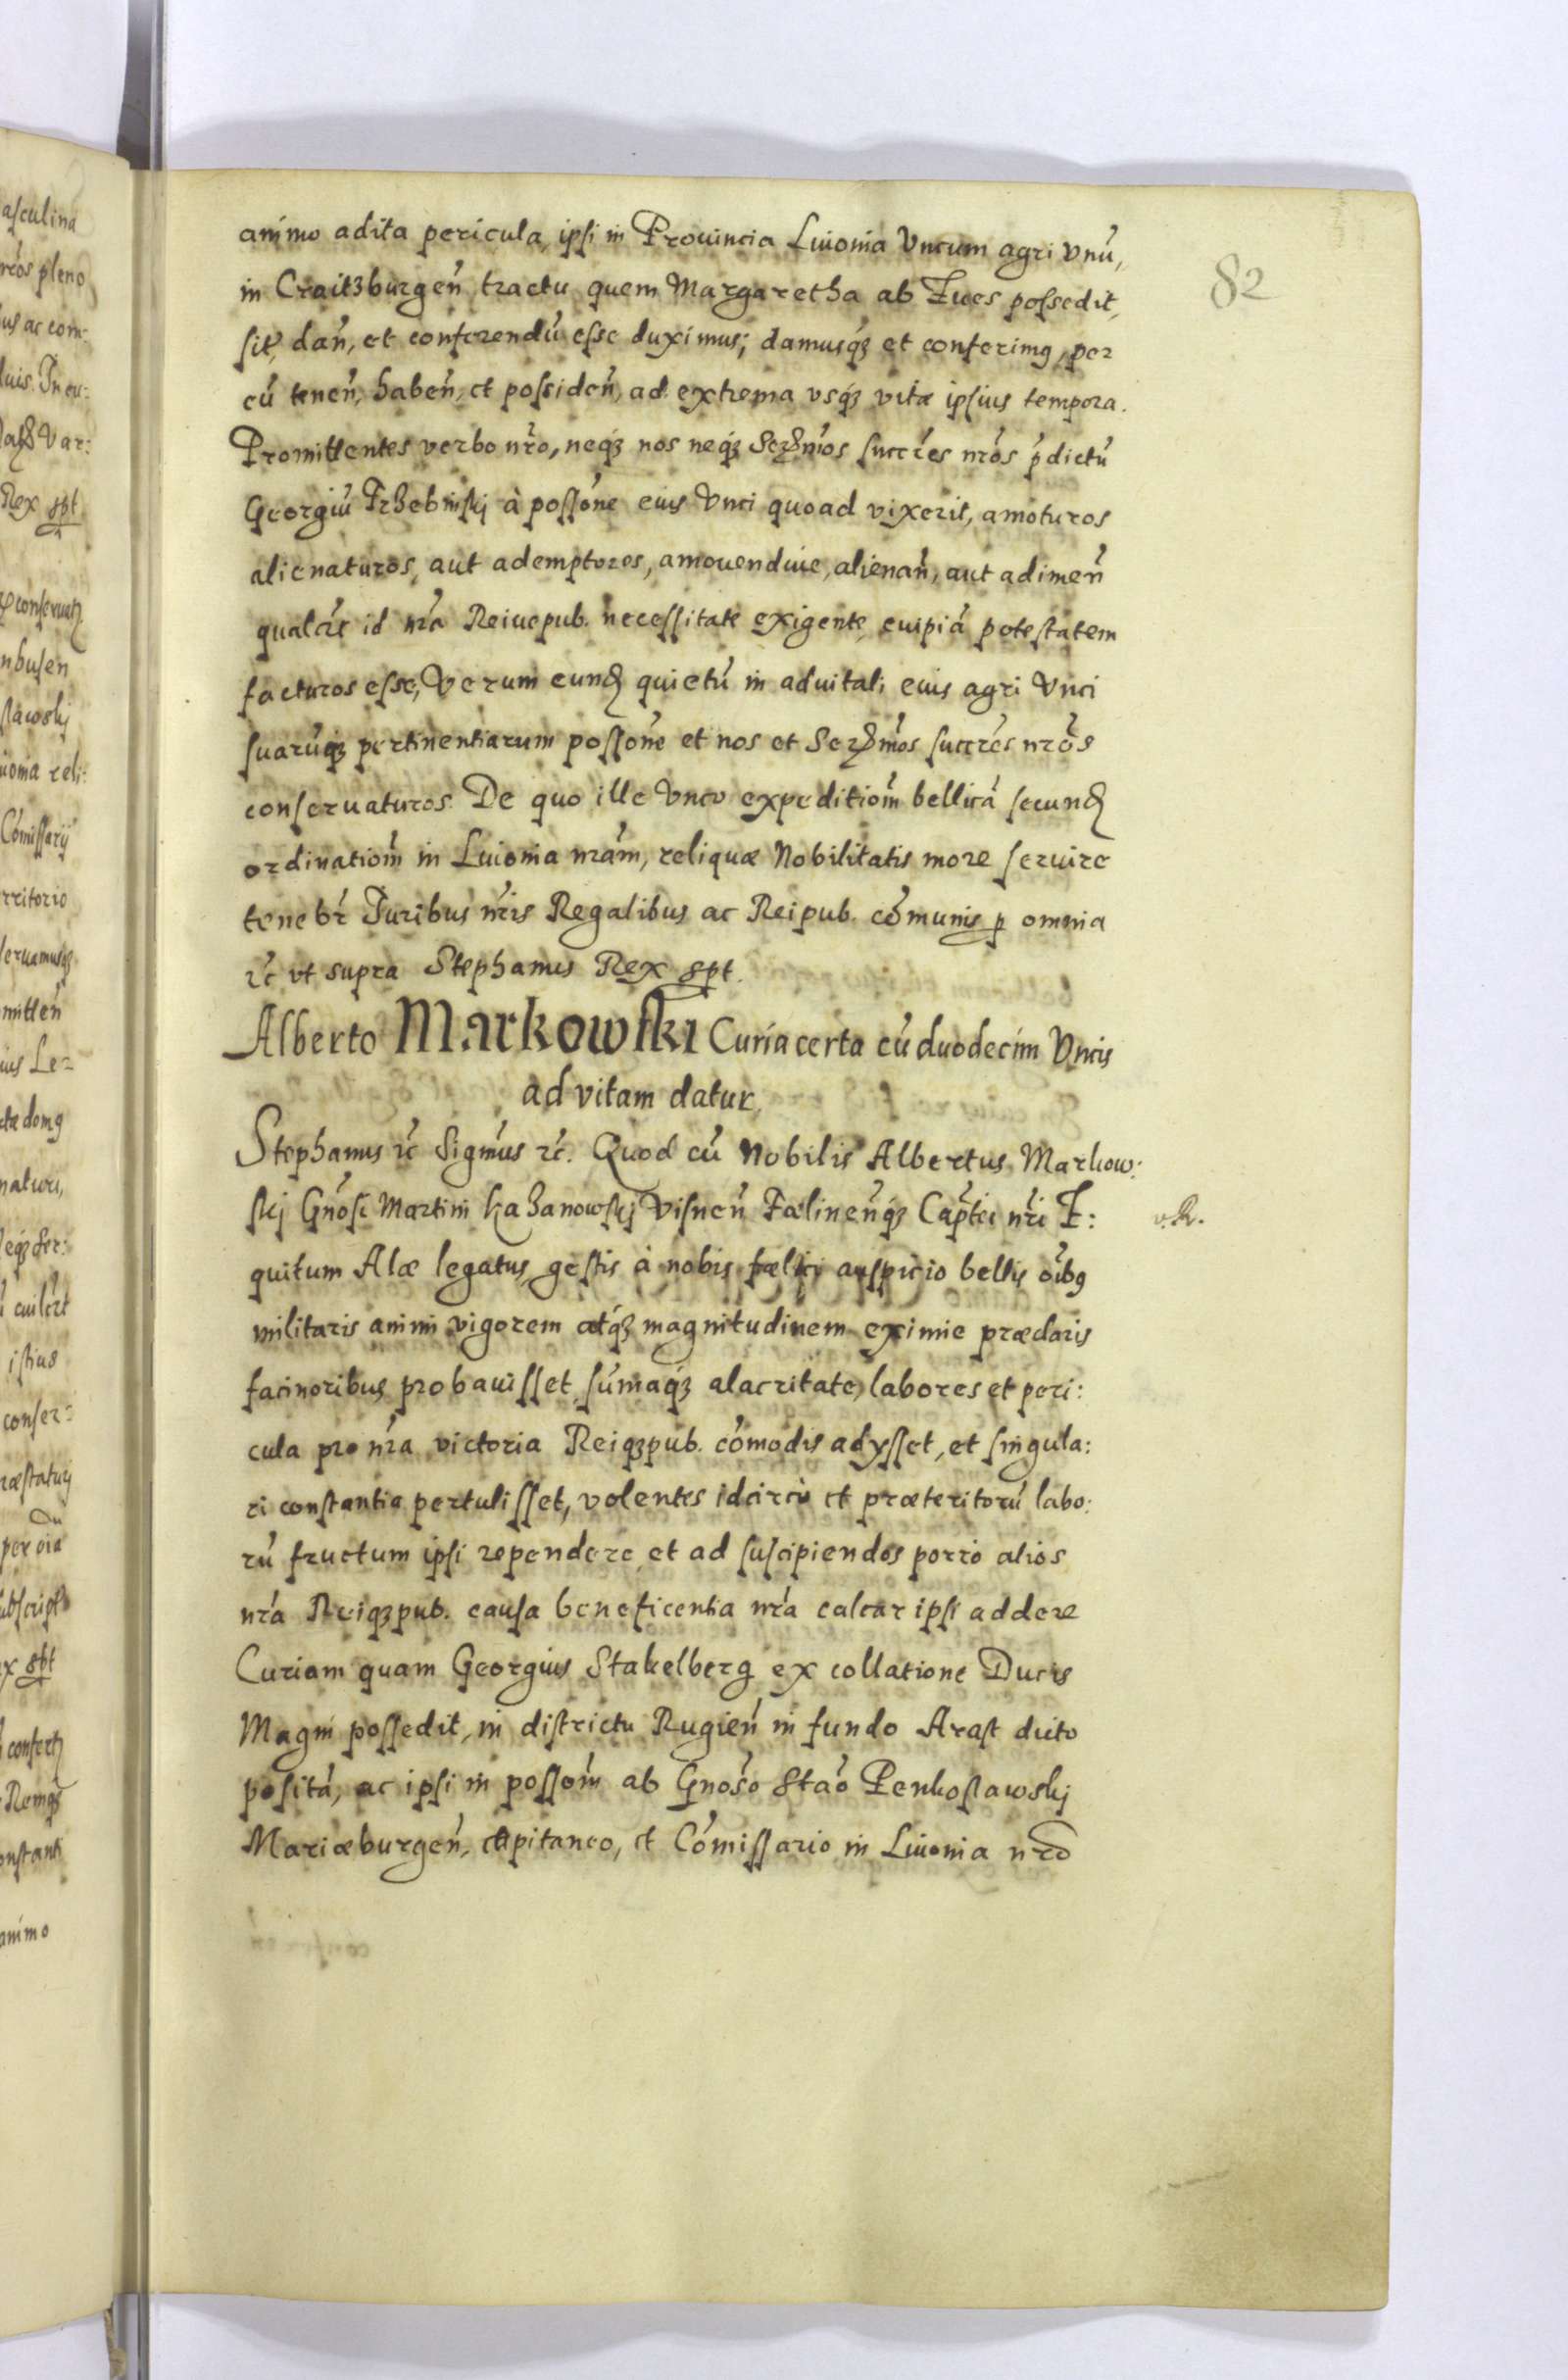 82
animo adita pericula, ipsi in Prouincia Liuonia Vncum agri vnũ,
in Craitzburgeñ tractu quem Margaretha ab Iues possedit,
sit, dañ, et conferendũ esse duximus; damusq́ꝫ et conferimꝰ, per
eũ teneñ, habeñ, et possideñ, ad extrema vsq́ꝫ vitæ ipsius tempora.
Promittentes verbo nr̃o, neq́ꝫ nos neq́ꝫ Serẽnm̃os succr̃es nr̃os p̃dictũ
Georgiũ Trzebinskj à possõne eius Vnci quoad vixerit, amoturos
alienaturos, aut ademptores, amouendiue, alienañ, aut adimeñ
qualcr̃c id nr̃a Reiuepub. necessitate exigente, cuipiã potestatem
facturos esse, Verum eund̃ quietũ in aduitali eius agri Vnci
suarũqꝫ pertinentiarum possõne et nos et Serẽnm̃os succr̃es nr̃os
conseruaturos. De quo ille Vnco expeditiom̃ bellicã secund̃
ordinatiom̃ in Liuonia nr̃am, reliquæ Nobilitatis more seruire
tenebr̃ Iuribus nr̃is Regalibus ac Reipub. cõmunis p omnia
rc̃ vt supra Stephanus Rex spt.
Alberto Markowski Curia certa cũ duodecim Vncis
ad vitam datur.
Stephanus rc̃ Sigm̃us rc̃. Quod cũ Nobilis Albertus Markow:
skj Gñosi Martini Kazanowskj Visneñ Fælineñq́ꝫ Cap̃tei nr̃i E:
quitum Alæ legatus, gestis à nobis fælici auspicio bellis oĩbꝰ
militaris animi vigorem atq́ꝫ magnitudinem eximie præclaris
facinoribus probauisset, sũmaq́ꝫ alacritate, labores et peri:
cula pro nr̃a victoria Reiqꝫpub. cõmodis adysset, et singula:
ri constantia pertulisset, volentes idcirco et præteritorũ labo:
rũ fructum ipsi rependere et ad suscipiendos porro alios
nr̃a Reiqꝫpub. causa beneficentia nr̃a calcar ipsi addere
Curiam quam Georgius Stakelberg ex collatione Ducis
Magni possedit, in districtu Rugieñ in fundo Arast dicto
positã, ac ipsi in possom̃ ab Gñoso Stao Penkoslawskj
Mariæburgeñ, capitaneo, et Cõmissario in Liuonia nr̃o
v. R.